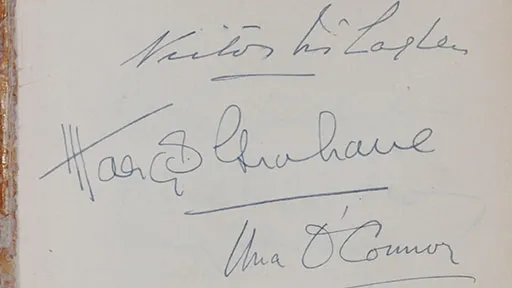 Victor McLaglen
Margot Grahame
Una O'Connor